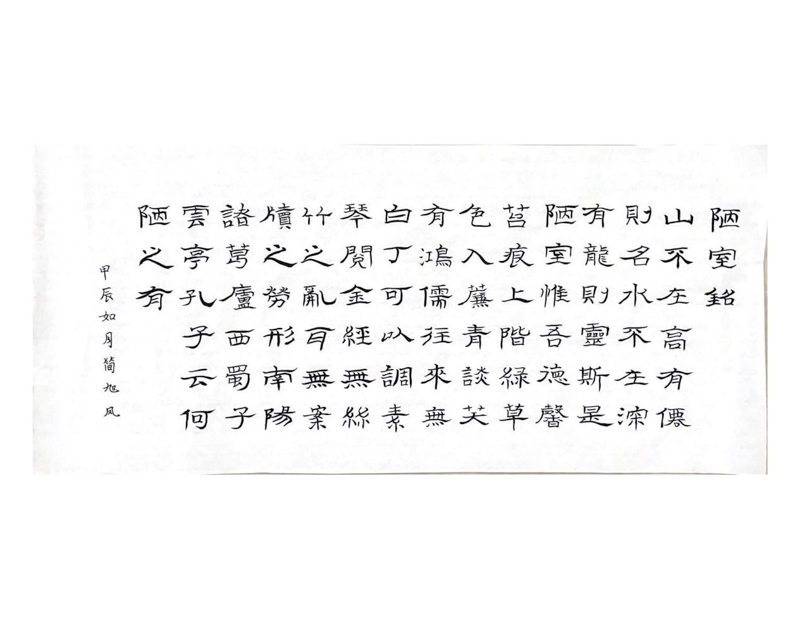 陋室銘
山不在高有僊
則名水不在深
有龍則靈斯是
陋室惟吾德馨
苔痕上階綠草
色入簾青談笑
有鴻儒往來無
白丁可以調素
琴閱金經無絲
竹之亂耳無案
牘之勞形南陽
諸葛廬西蜀子
雲亭孔子云何
陋之有
甲辰如月簡旭風